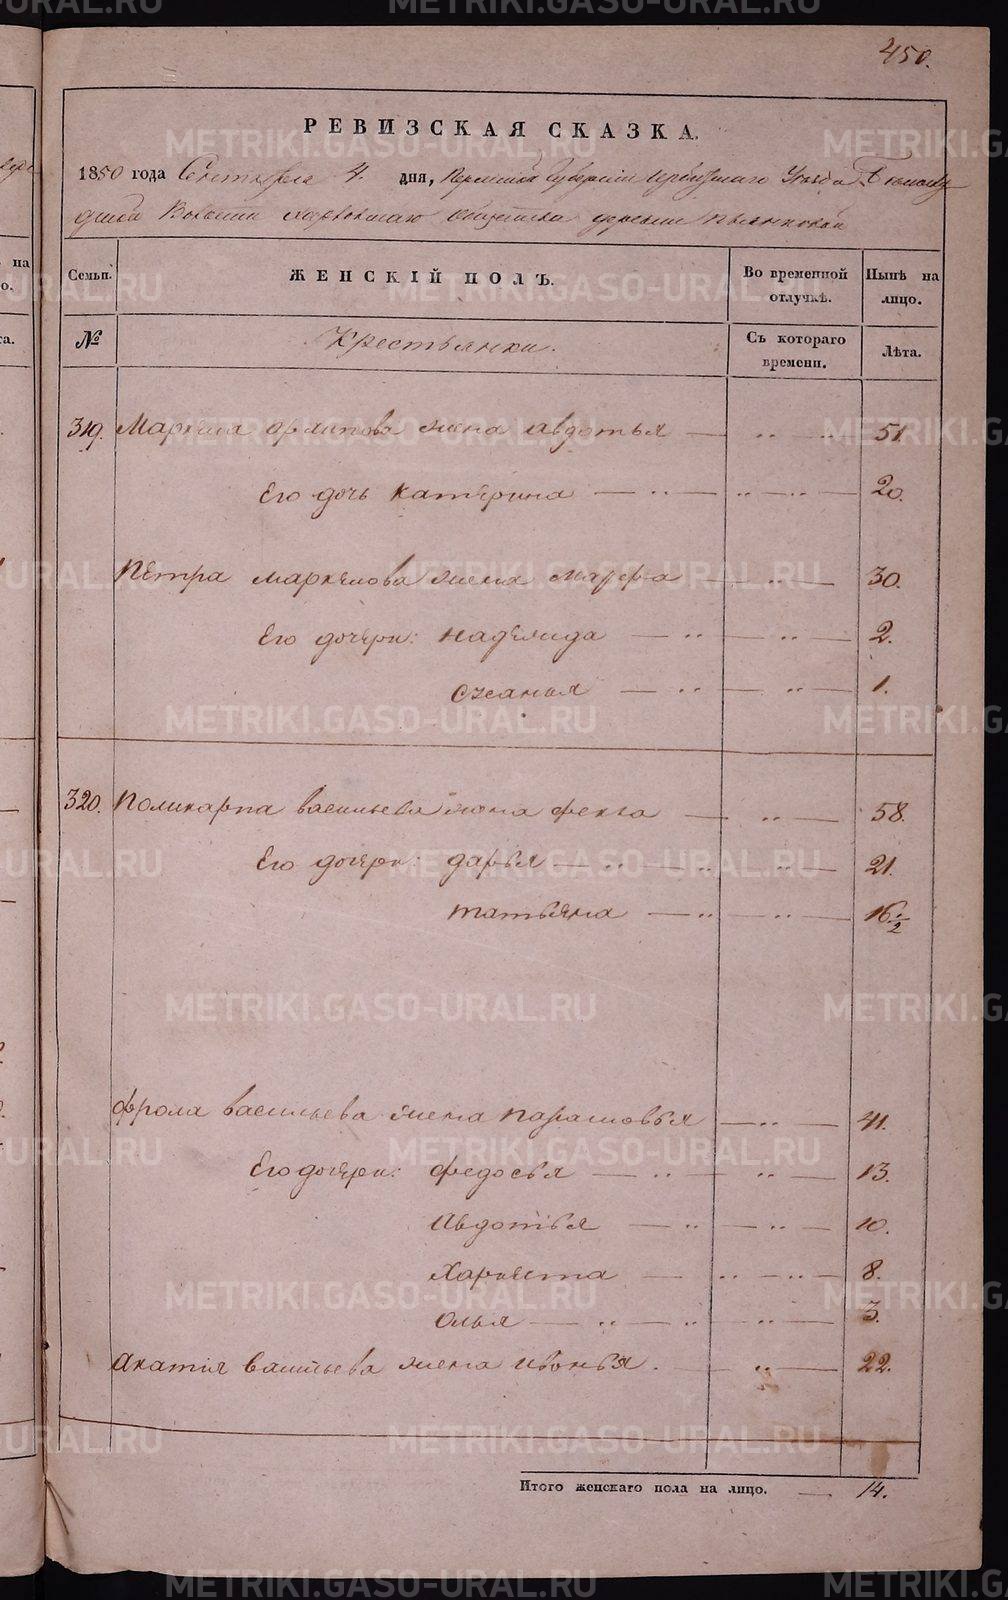 450.
РЕВИЗСКАЯ СКАЗКА.
1850 года Сентября 4. дня, Пермской Губернии Ирбитскаго Уезда
Волости общества деревни
Семьи. ЖЕНСКІЙ ПОЛЪ. Во временной отлучкѣ. Нынѣ на лицо.
№ Крестьянки. Съ котораго времени. Лѣта.
319. Маркела Архипова жена Авдотья 51
Его дочь Катерина 20.
Петра Маркелова жена Марфа 30.
Его дочери: Надежида 2.
1.
320. Поликарпа Васильева жена Фекла 58.
Его дочери: Дарья 21.
Татьяна 16 1/2
Фрола Васильева жена Парасковья 41.
Его дочери: Федосья 13.
Авдотья 10.
8.
3.
Васильева жена 22.
Итого женскаго пола на лицо. 14.
METRIKI.GASO-URAL.RU